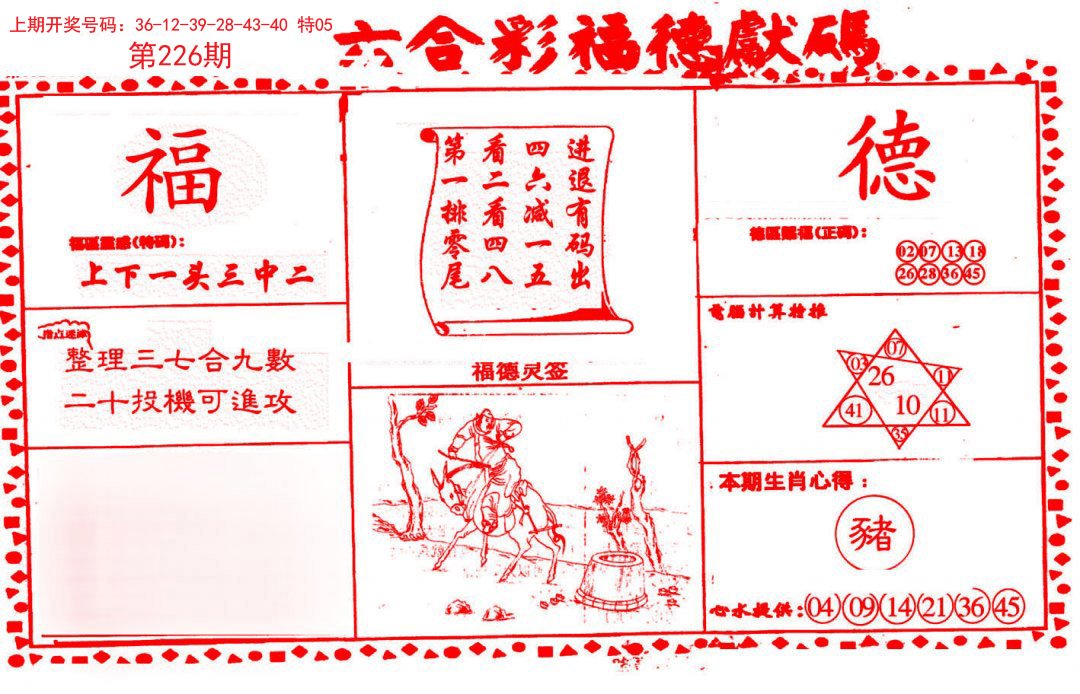 上期开奖号码：36-12-39-28-43-40 特05
第226期
六合彩福德獻碼
福
福區靈感(特碼)：
上下一头三中二
整理三七合九數
二十投機可進攻
进退有码出
四六减一五
看二看四八
第一排零尾
福德灵签
德
德區賜福(正碼)：
02 07 13 18
26 28 36 45
電腦計算精推
07
03 26 1
41 10 11
35
本期生肖心得：
豬
心水提供：04 09 14 21 36 45